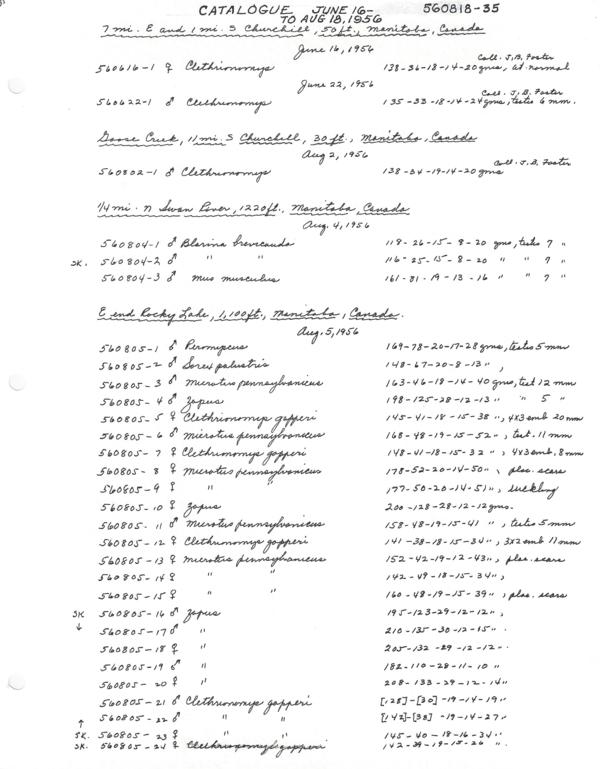 CATALOGUE JUNE 16- 560818-35
TO AUG 18, 1956
7 mi. E and 1 mi. S Churchill, 50 ft., Manitoba, Canada
June 16, 1956
Coll. J.B. Foster
560616-1 ♀ Clethrionomys 138-36-18-14-20 gms, normal
June 22, 1956
Coll. J. B. Foster
560622-1 ♂ Clethrionomys 135-33-18-14-24 gms, testis 6 mm.
Goose Creek, 11 mi. S Churchill, 30 ft., Manitoba, Canada
Aug 2, 1956
Coll. J. B. Foster
560802-1 ♂ Clethrionomys 138-34-19-14-20 gms
1/4 mi. N Swan River, 1220 ft., Manitoba, Canada
Aug. 4, 1956
560804-1 ♂ Blarina brevicauda 118-26-15-8-20 gms, testes 7 "
SK. 560804-2 ♂ " " 116-25-15-8-20 " " 7 "
560804-3 ♂ Mus musculus 161-81-19-13-16 " " 7 "
E end Rocky Lake, 1,100 ft., Manitoba, Canada.
Aug. 5, 1956
560805-1 ♂ Peromyscus 169-78-20-17-28 gms, testis 5 mm
560805-2 ♂ Sorex palustris 148-67-20-8-13 " ,
560805-3 ♂ Microtus pennsylvanicus 163-46-18-14-40 gms, test 12 mm
560805-4 ♂ Zapus 198-125-28-12-13 " " 5 "
560805-5 ♀ Clethrionomys gapperi 145-41-18-15-38 ", 4X3 emb 20 mm
560805-6 ♂ Microtus pennsylvanicus 168-48-19-15-52 ", test. 11 mm
560805-7 ♀ Clethrionomys gapperi 148-41-18-15-32 ", 4x3 emb, 8 mm
560805-8 ♀ Microtus pennsylvanicus 178-52-20-14-50 " plac. scars
560805-9 ♀ " 177-50-20-14-51 ", suckling
560805-10 ♀ Zapus 200-128-28-12-12 gms.
560805-11 ♂ Microtus pennsylvanicus 158-48-19-15-41 ", testis 5 mm
560805-12 ♀ Clethrionomys gapperi 141-38-18-15-34 ", 3x2 emb 11 mm
560805-13 ♀ Microtus pennsylvanicus 152-42-19-12-43 ", plac. scars
560805-14 ♀ " " 142-49-18-15-34 ",
560805-15 ♀ " " 160-48-19-15-39 ", plac. scars
SK 560805-16 ♂ Zapus 195-123-29-12-12 ",
↓ 560805-17 ♂ " 210-135-30-12-15 ".
560805-18 ♀ " 205-132-29-12-12 ".
560805-19 ♂ " 182-110-28-11-10 "
560805-20 ♀ " 208-133-29-12-14 "
560805-21 ♂ Clethrionomys gapperi [128]-[30]-19-14-19 "
↑ 560805-22 ♂ " " [142]-[38]-19-14-27 "
SK. 560805-23 ♀ " " 145-40-18-16-34 "
SK. 560805-24 ♀ Clethrionomys gapperi 142-39-19-15-26 ".